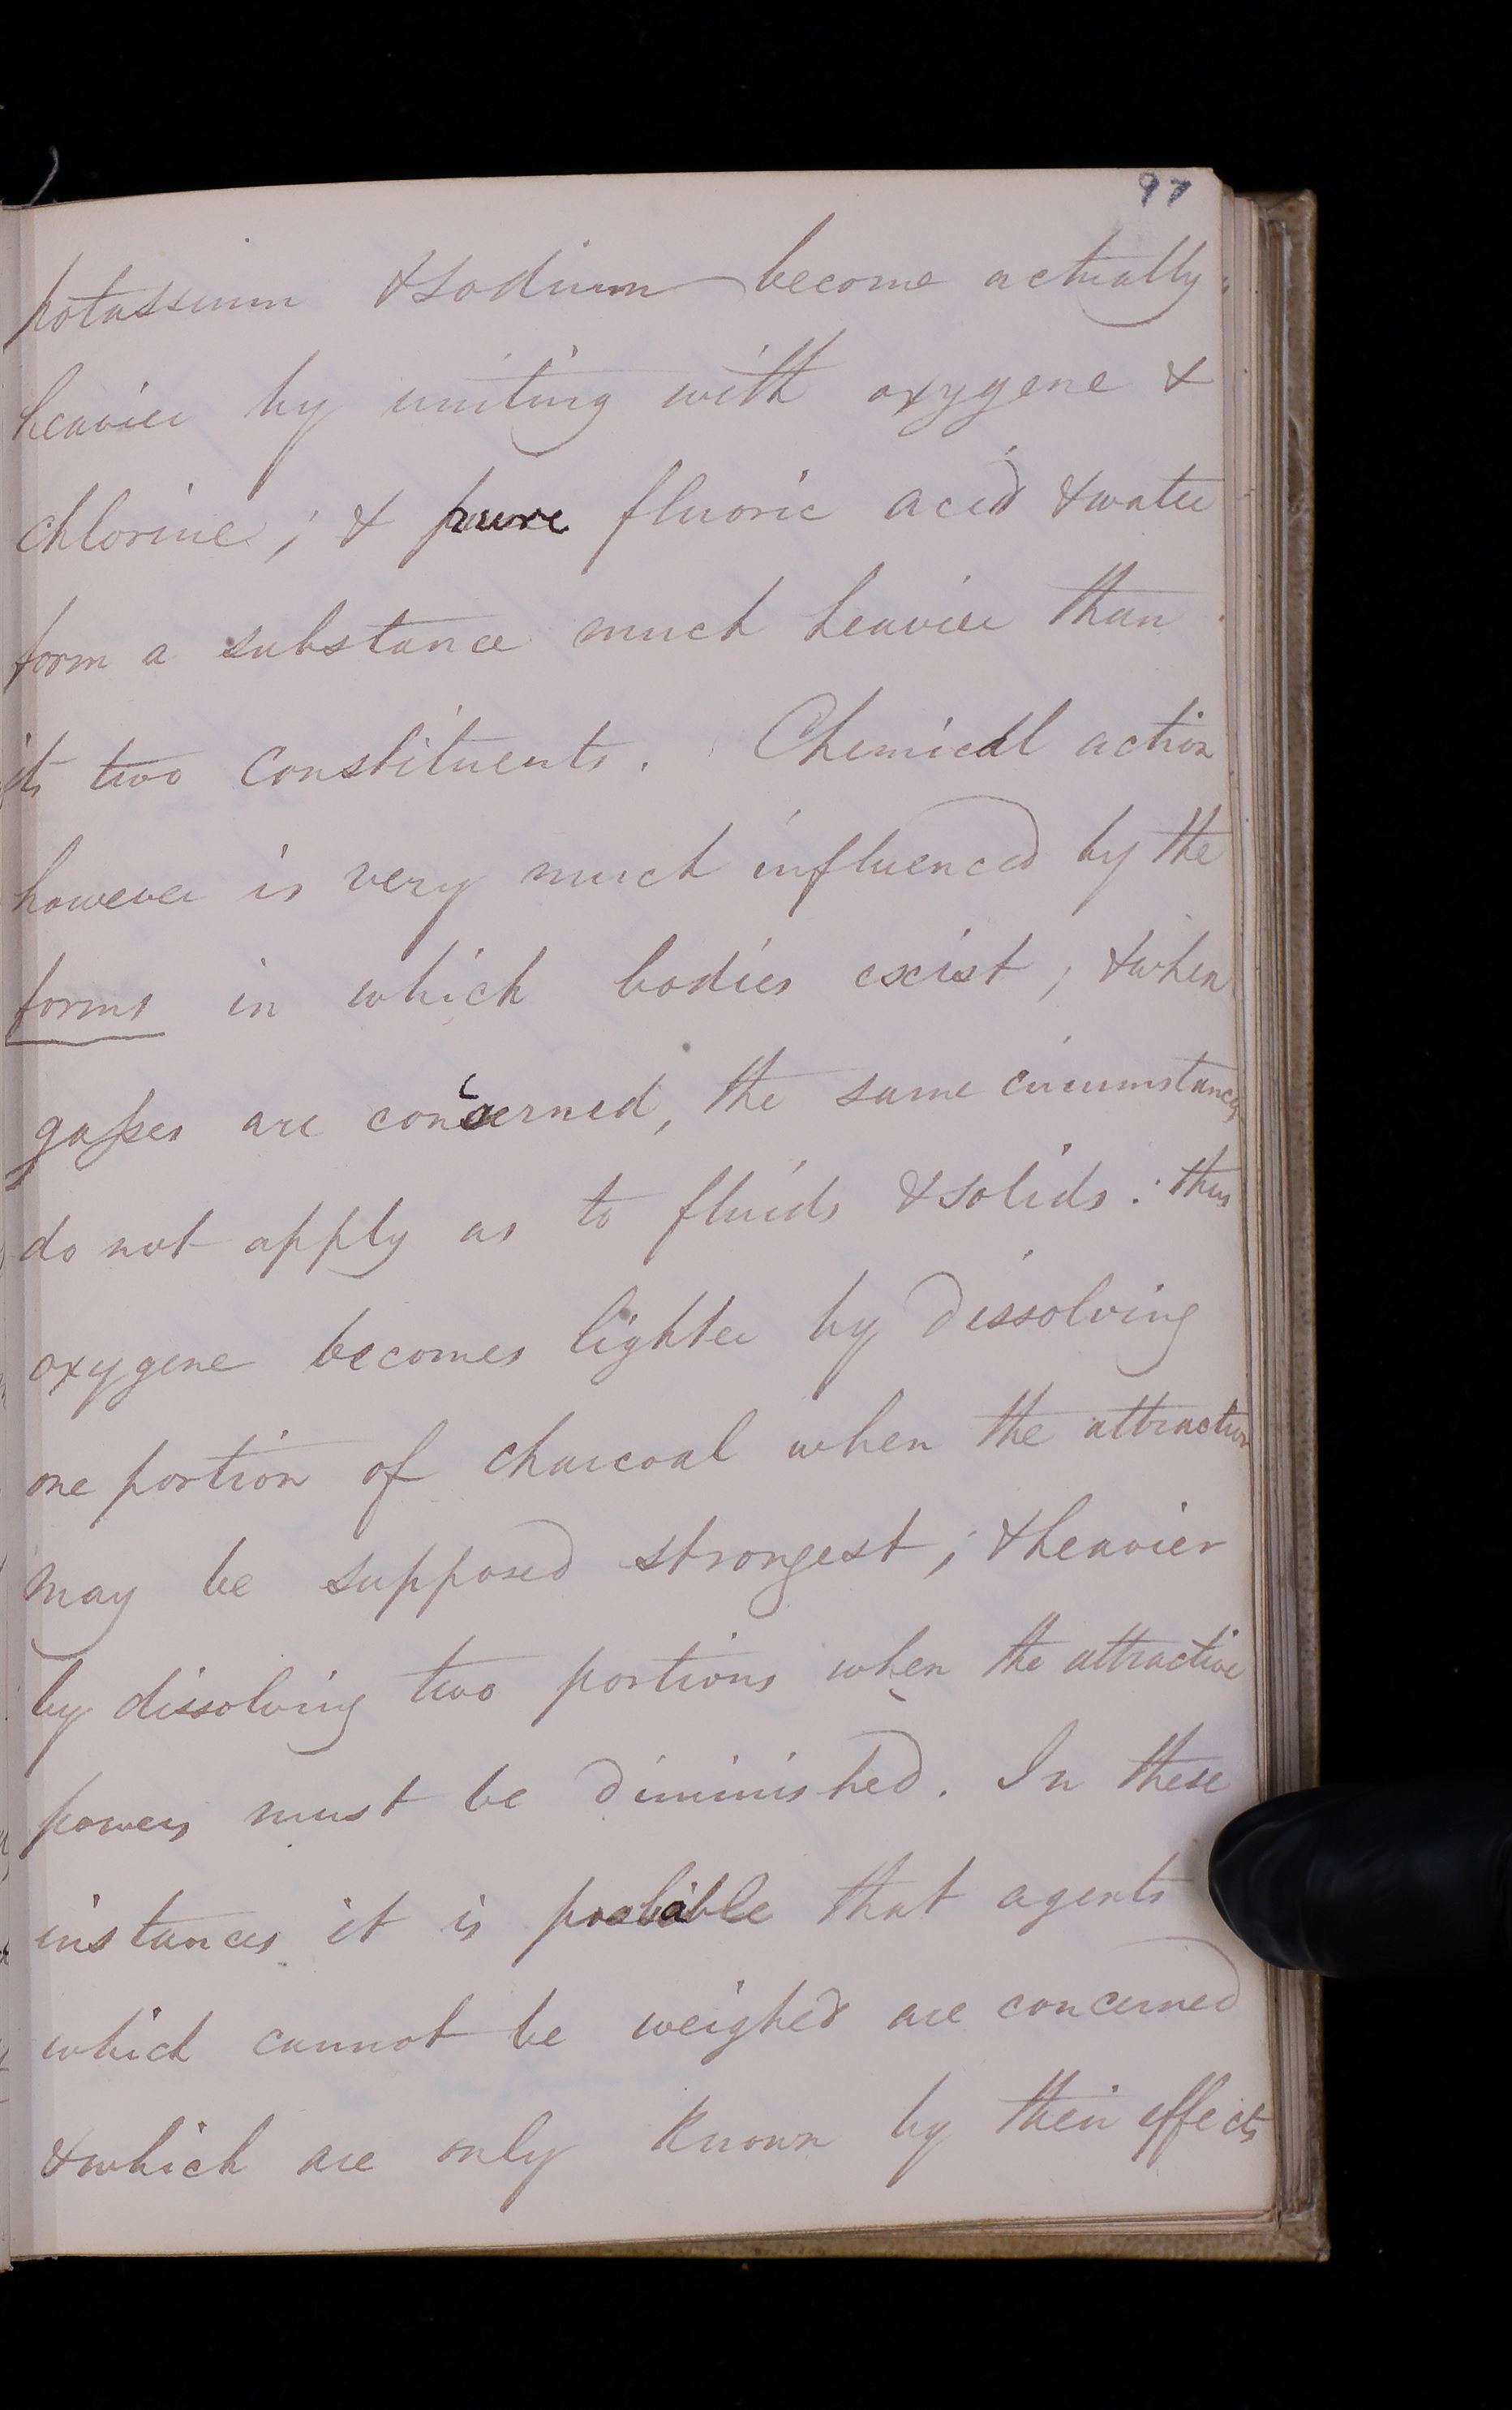 97
potassium & sodium become actually
heavier by uniting with oxygene &
chlorine; & pure fluoric acid & water
form a substance much heavier than
its two constituents. Chemical action
however is very much influenced by the
forms in which bodies exist; & when
gasses are concerned, the same circumstances
do not apply as to fluids & solids: thus
oxygene becomes lighter by dissolving
one portion of charcoal when the attraction
may be supposed strongest; & heavier
by dissolving two portions when the attractive
powers must be diminished. In these
instances it is probable that agents
which cannot be weighed are concerned
& which are only known by their effects